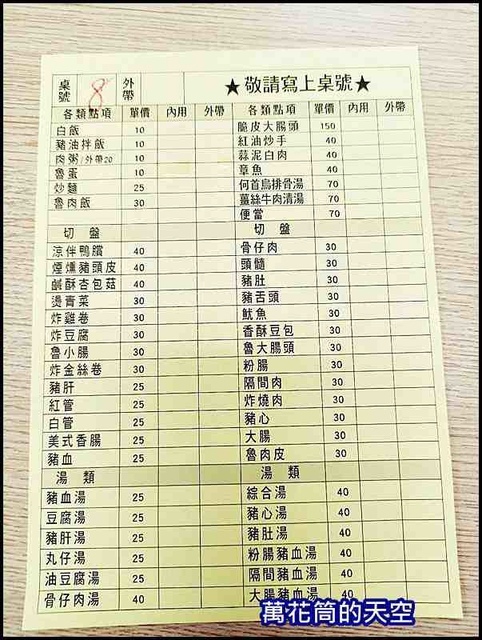 桌號 8 外帶 ★敬請寫上桌號★
各類點項 單價 內用 外帶 各類點項 單價 內用 外帶
白飯 10 脆皮大腸頭 150
豬油拌飯 10 紅油炒手 40
肉粥/外帶20 10 蒜泥白肉 40
魯蛋 10 章魚 40
炒麵 25 何首烏排骨湯 70
魯肉飯 30 薑絲牛肉清湯 70
便當 70
切盤 切盤
涼伴鴨臢 40 骨仔肉 30
煙燻豬頭皮 40 頭髓 30
鹹酥杏包菇 40 豬肚 30
燙青菜 30 豬舌頭 30
炸雞卷 30 魷魚 30
炸豆腐 30 香酥豆包 30
魯小腸 30 魯大腸頭 30
炸金絲卷 30 粉腸 30
豬肝 25 隔間肉 30
紅管 25 炸燒肉 30
白管 25 豬心 30
美式香腸 25 大腸 30
豬血 25 魯肉皮 30
湯類 湯類
豬血湯 25 綜合湯 40
豆腐湯 25 豬心湯 40
豬肝湯 25 豬肚湯 40
丸仔湯 25 粉腸豬血湯 40
油豆腐湯 25 隔間豬血湯 40
骨仔肉湯 30 大腸豬血湯 40
萬花筒的天空